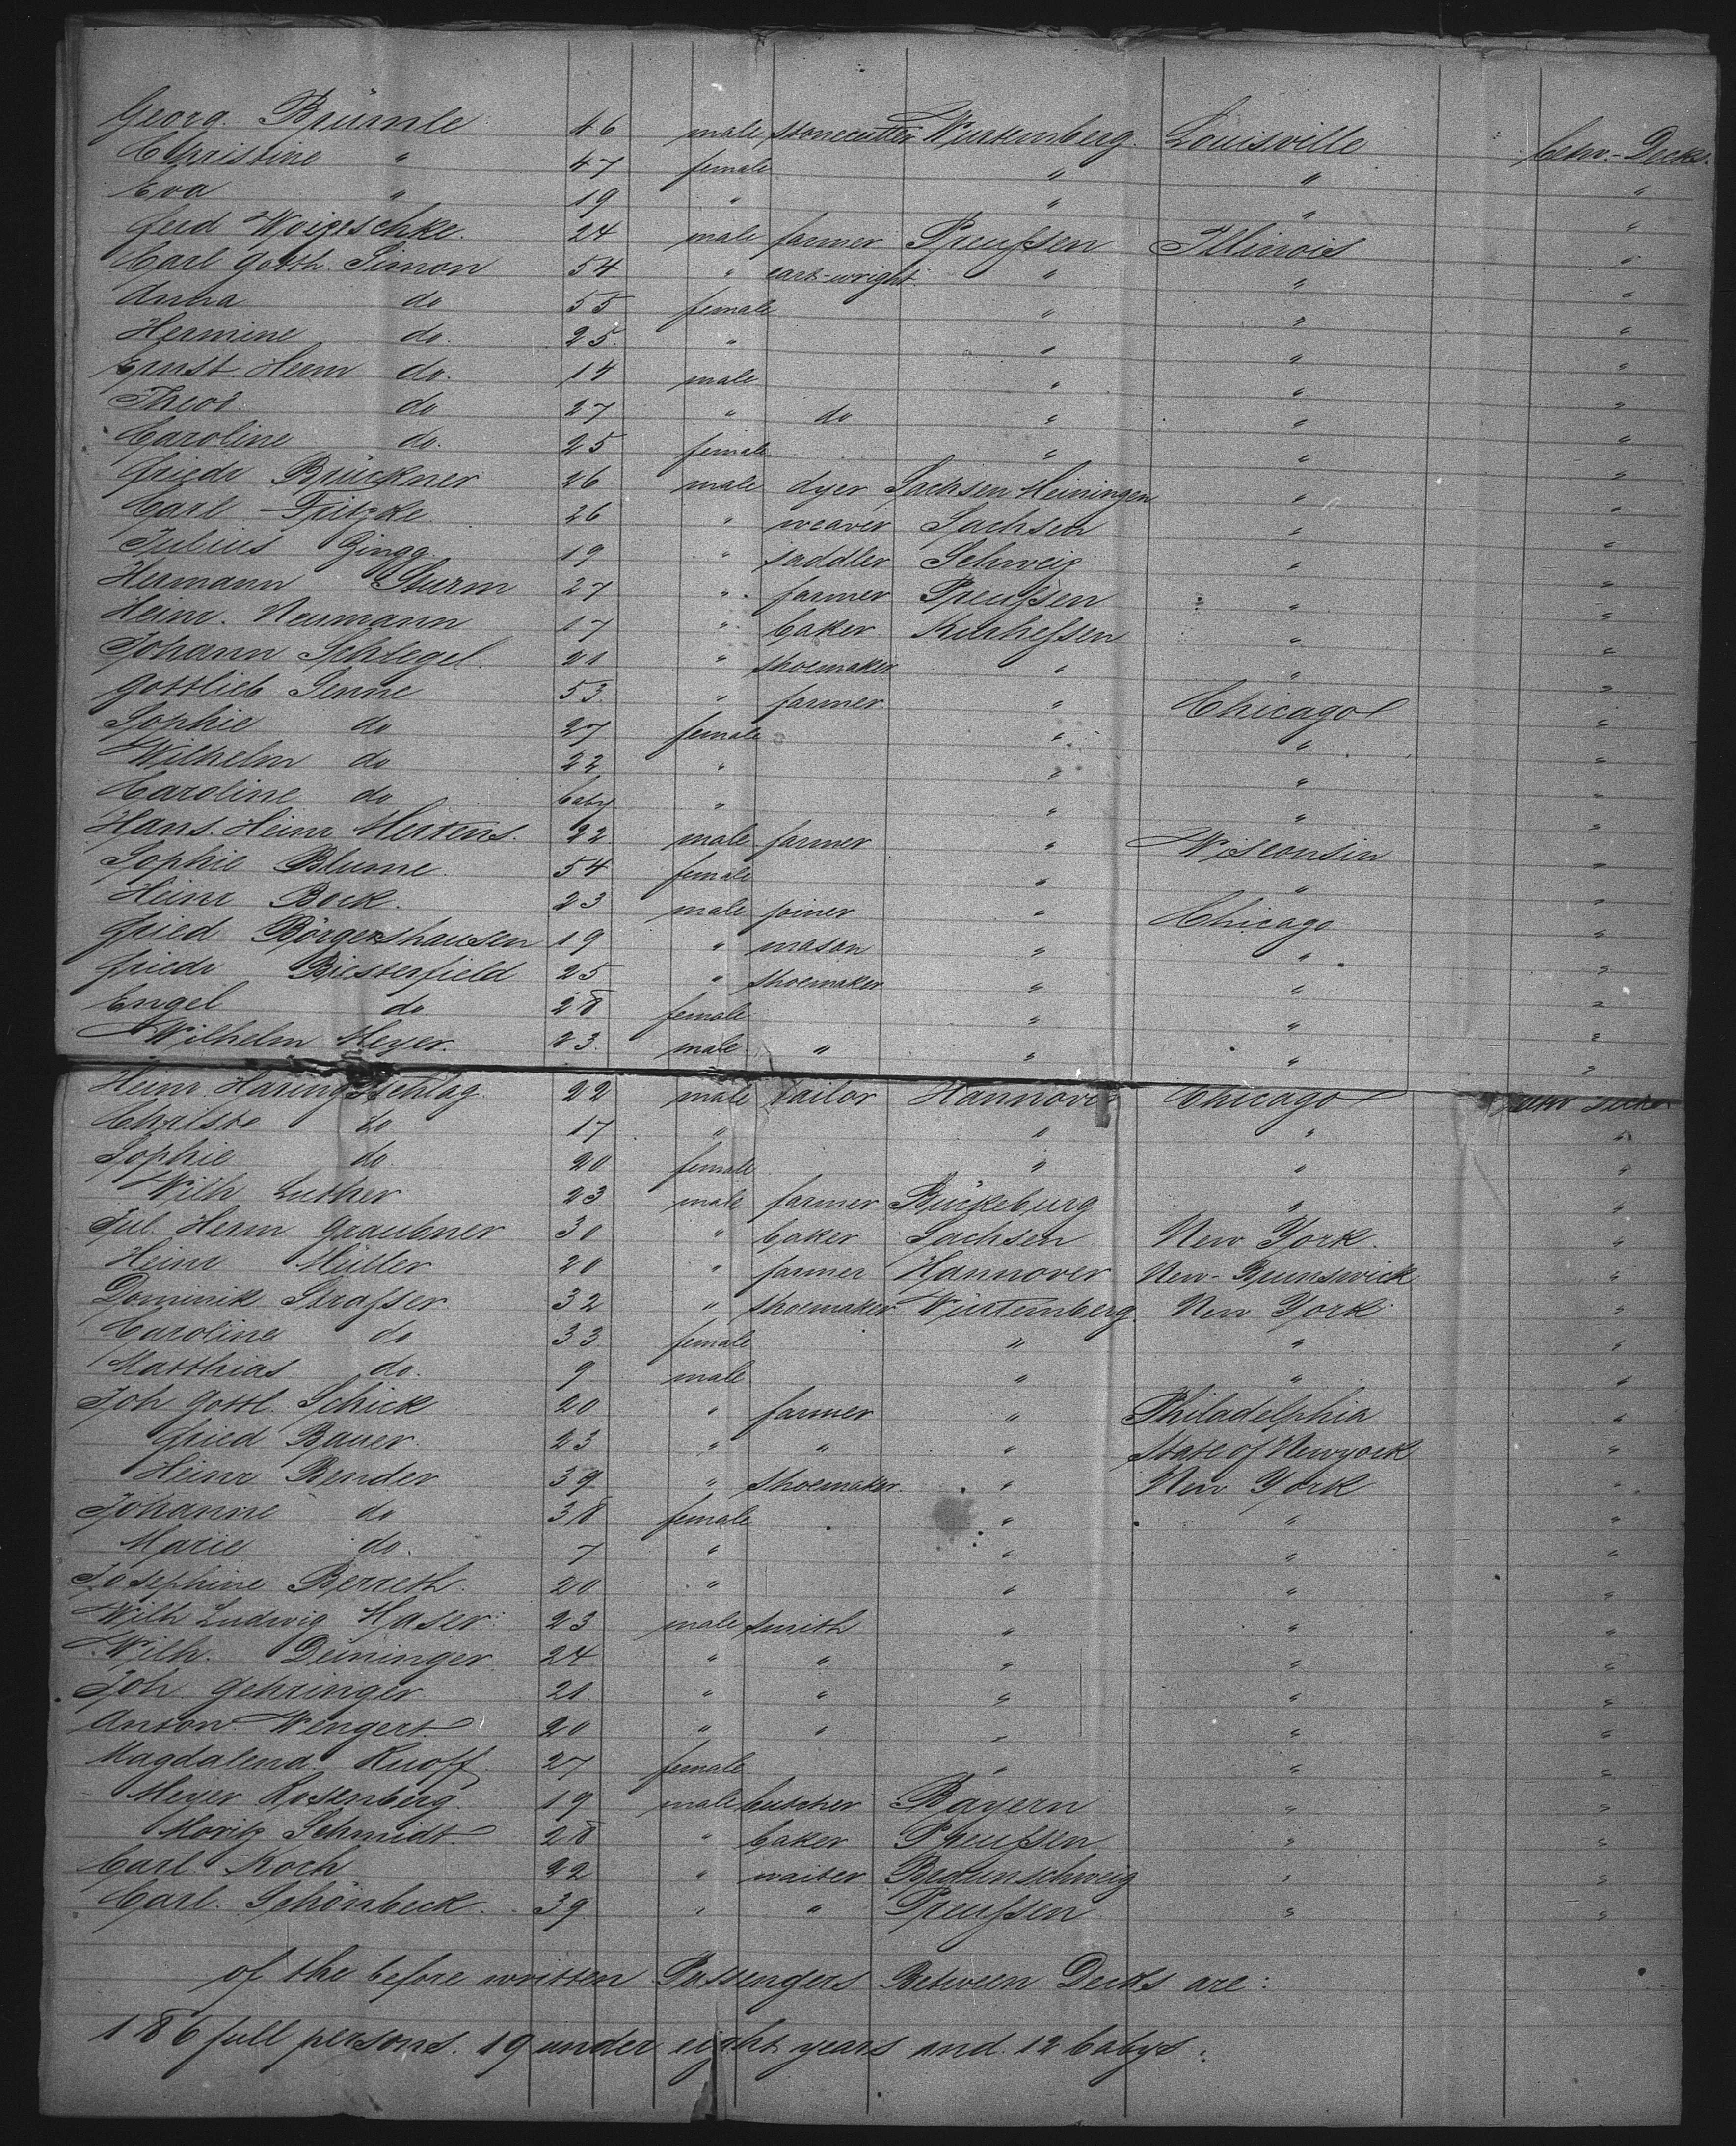 Georg. Brümle 46 male stonecutter Würtemberg. Louisville betw.-Decks.
Christine " 47 female " " "
Eva " 19 " " " "
Ferd Woigeschke. 24 male farmer Preußen Illinois "
Carl Gotth. Simon 54 " cart-wright " " "
Anna do 55 female " " "
Hermine do. 25. " " " "
Ernst. Herm do. 14 male " " "
Theod. do 27 " do " " "
Caroline do. 25 female " " "
Friedr Brückner 26 male dyer Sachsen Meiningen " "
Carl Fritzke 26 " weaver Sachsen " "
Julius Zingg 19 " saddler Schweiz " "
Hermann Sturm 27 " farmer Preußen " "
Heinr. Neumann 17 " baker Kurhessen " "
Johann Schlegel. 21 " shoemaker " " "
Gottlieb Senne 53. " farmer " Chicago "
Sophie do 27 female " " "
Wilhelm do 22 " " " "
Caroline do baby " " " "
Hans. Heinr Mertens. 22 male farmer " Wisconsin "
Sophie Blume. 54 female " " "
Heinr Bock. 23 male joiner " Chicago "
Fried Börgershausen 19 " mason " " "
Friedr Biesterfield 25 " shoemaker " " "
Engel do 28 female " " "
Wilhelm Meyer. 23. male " " " "
Heinr Haringsschlag. 22 male tailor Hannover Chicago betw Decks
do 17 " " " "
Sophie do 20 female " " "
Wilh Luther 23 male farmer Bückeburg " "
Jul. Herm Graubner 30 " baker Sachsen New York. "
Heinr Müller 20 " farmer Hannover New-Brunswick "
Dominik Straßer. 32 " shoemaker Würtemberg. New York "
Caroline do 33 female " " "
Matthias do. 9 male " " "
Joh Gottl. Schick 20 " farmer " Philadelphia "
Fried Bauer. 23 " " " State of Newyork "
Heinr Bender 39 " shoemaker. " New York "
Johanne do 38 female " " "
Marie do. 7 " " " "
Josephine Berreth. 20 " " " "
Wilh Ludwig Haser. 23 male smith " " "
Wilh. Deininger 24 " " " " "
Joh Gehringer 21. " " " " "
Anton Wengert 20 " " " " "
Magdalena. Knoff. 27 female " " "
Meyer Rosenberg. 19 male butcher Bayern " "
Moritz Schmidt 28 " baker Preußen " "
Carl Koch 22 " waiter Braunschweig " "
Carl. Schönbeck. 39 " " Preußen " "
of the before written Passengers Between Decks are:
186 full persons. 19 under eight years and. 12 babys.